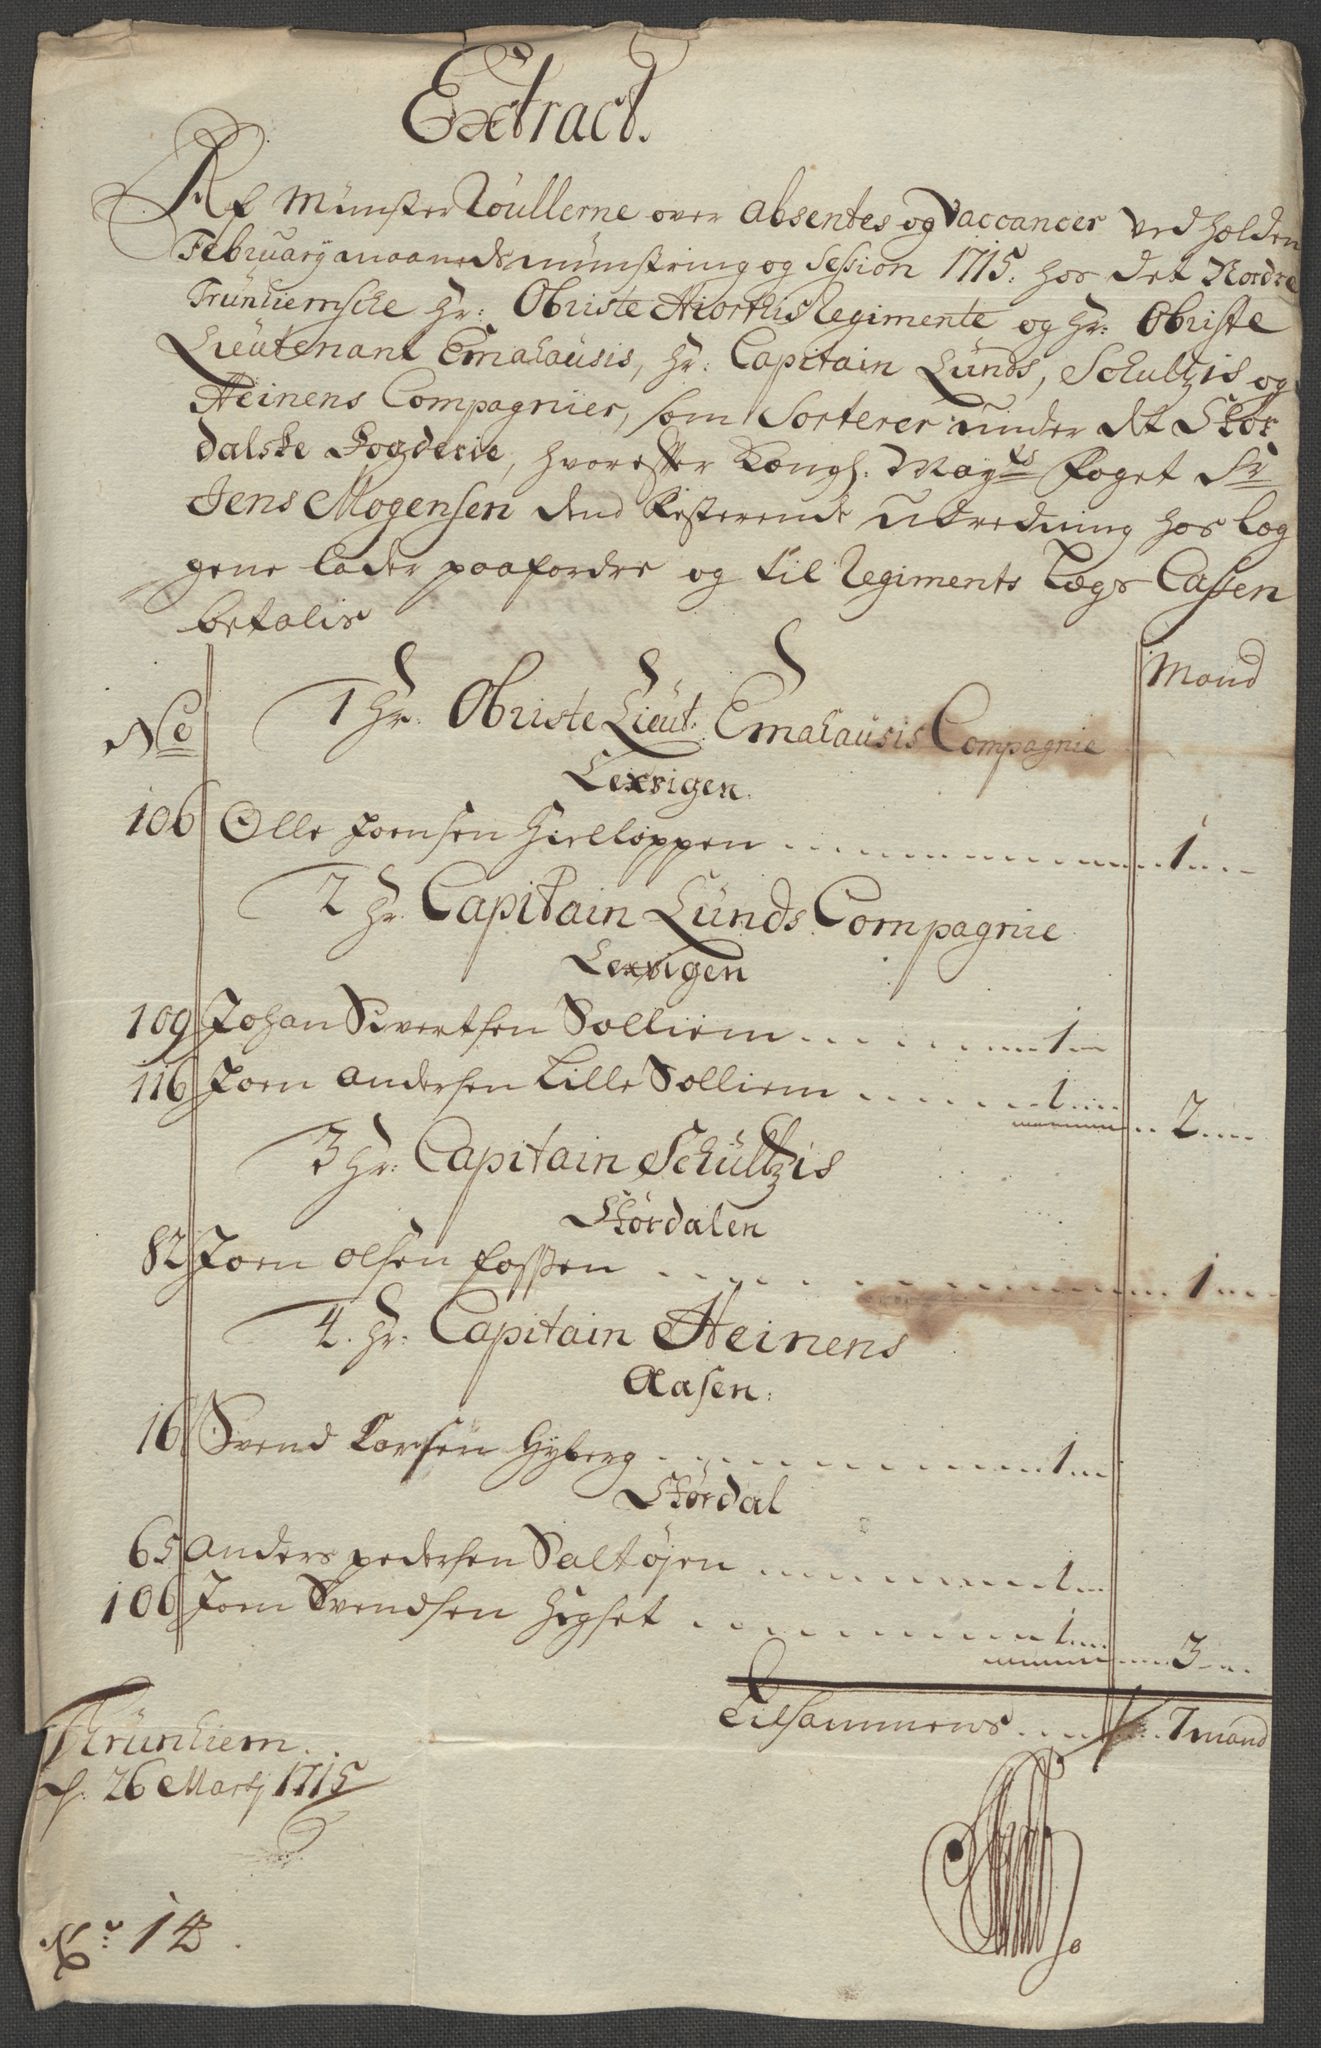 Extract.
Af Münster Röullerne over Absentes og Vaccancer ved holden
February maaneds münstring og Session 1715. hos det Nordre
Trünhiemsche Hr: Obriste Hiorthis Regimente og Hr: Obriste
Lieutenant Emahausis, Hr: Capitain Lünds, Schultzis og
Heinens Compagnier, som Sorterer under det Stør
dalske Fogderie, hvorefter Kongl: May.ts Foget Sr
Jens Mogensen dend Resterende udredning hos læg
gene lader paafordre og til Regiments Lægs Cassen
betalis
Mand
No
1 Hr: Obriste Lieut: Emahausis Compagnie
Lexvigen.
106 Olle Joensen Hielloppen 1
2 Hr. Capitain Lünds Compagnie
Lexvigen
109 Johan Sivertsen Solliem 1
116 Joen Andersen Lille Solliem 1 2
3 Hr: Capitain Schültzis
Størdalen
82 Joen Olsen Fossen 1
4. Hr: Capitain Heinens
Aasen:
16 Svend Larsen Hyberg 1
Størdal
65 Anders pedersen Saltøjen 1
106 Joen Svendsen Hegset 1 3
Tilsammens 7 mand
Trünhiem
d. 26 Martj 1715
No: 14.